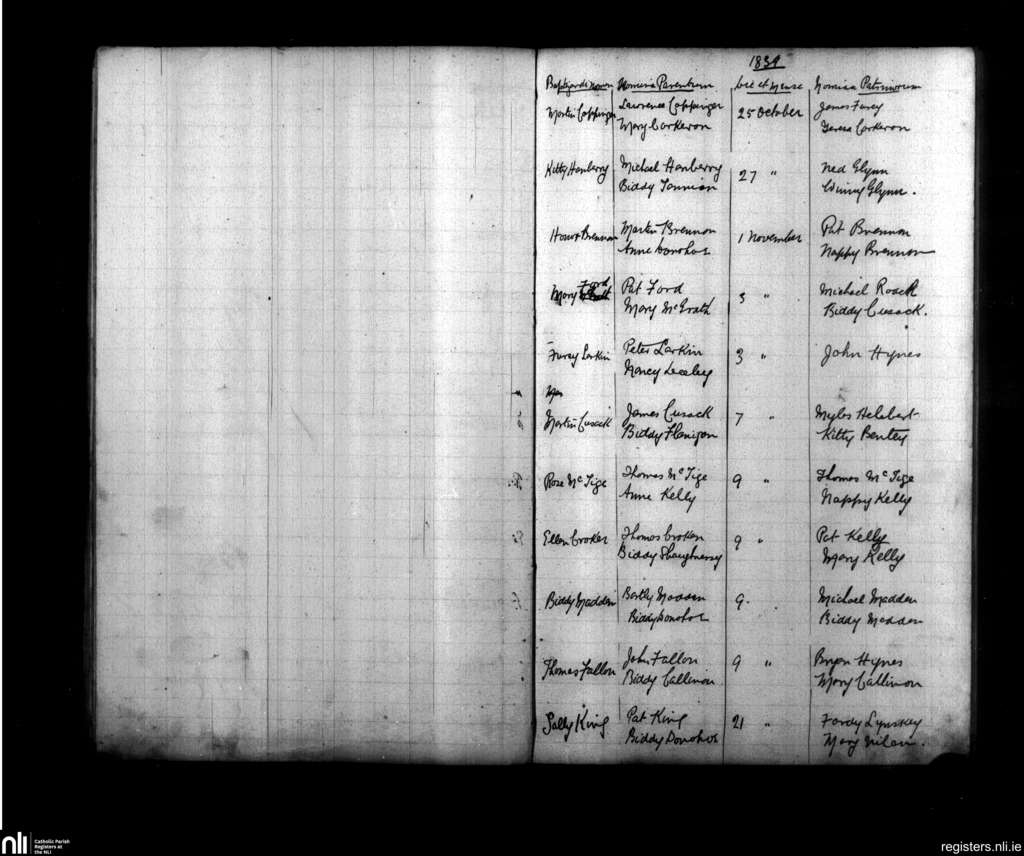 1839
Nomina Parentum Die et Mense Nomina Patrinorum
Martin Coppinger Lawrence Coppinger 25 October James Furey
Mary Corkeron Teresa Corkeron
Kitty Hanberry Michael Hanberry 27 " Ned Glynn
Biddy Tannian Winny Glynn.
Honor Brennan Martin Brennon 1 November Pat Brennon
Anne Donohoe Nappy Brennon
Ford
Mary Pat Ford 3 " Michael Roack
Mary McGrath Biddy Cusack.
Fursy Larkin Peter Larkin 3 " John Hynes
Nancy
Martin Cusack James Cusack 7 " Myles Helebert
Biddy Flanigan Kitty Bentey
Rose Mc Tige Thomas Mc Tige 9 " Thomas Mc Tige
Anne Kelly Nappy Kelly
Ellen Croker Thomas Croken 9 " Pat Kelly
Biddy Shaughnessy Mary Kelly
Biddy Madden Bartly Madden 9. Michael Madden
Biddy Donohoe Biddy Madden
Thomas Fallon John Fallon 9 " Bryan Hynes
Biddy Callinon Mary Callinon
Sally King Pat King 21 " Fordy Lynskey
Biddy Donohoe Mary Nilan.
nli Catholic Parish
Registers at
the NLI
registers.nli.ie